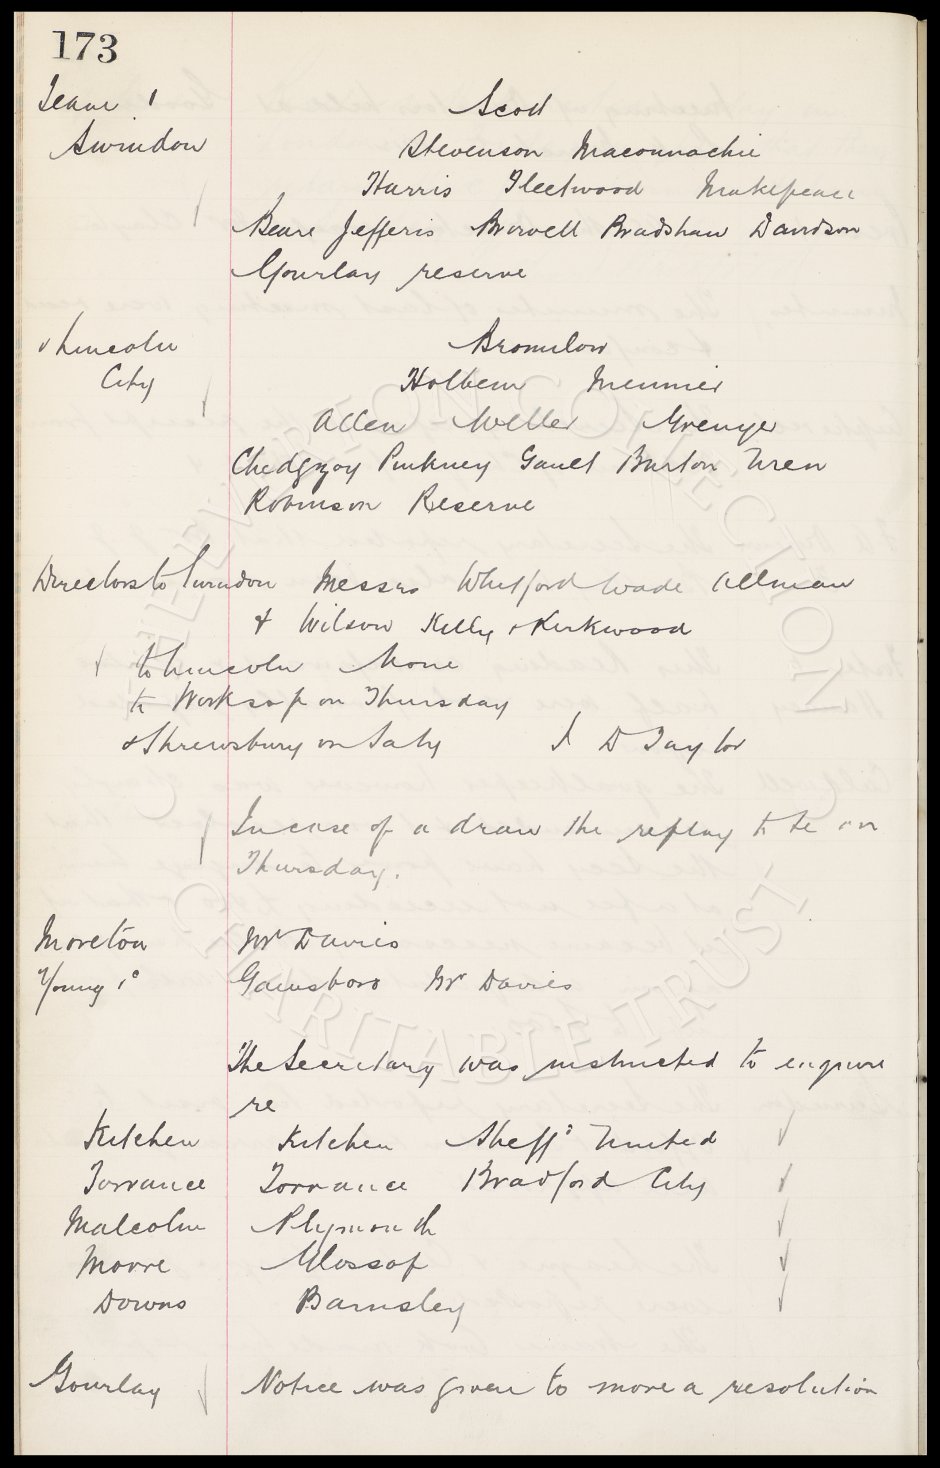 173
Team 1 Scott
Swindon Stevenson Maconnachie
Harris Fleetwood Makepeace
Beare Jefferis Browell Bradshaw Davidson
Gourlay reserve
v Lincoln Bromilow
City Holbem Meunier
Allen Weller Grenyer
Chedgzoy Pinkney Gault Burton Wren
Robinson Reserve
Directors to Swindon Messrs Whitford Wade Allman
& Wilson Kelly & Kirkwood
to Lincoln None
to Worksop on Thursday
& Shrewsbury on Saty D Taylor
In case of a draw the replay to be on
Thursday.
Moreton Mr Davies
Young Gainsboro Mr Davies
The Secretary was instructed to enquire
re
Kitchen Kitchen Sheffd United
Torrance Torrance Bradford City
Malcolm Plymouth
Moore Glossop
Downs Barnsley
Gourlay Notice was given to move a resolution
HELLENIC
COLLECTION
CHARITABLE TRUST